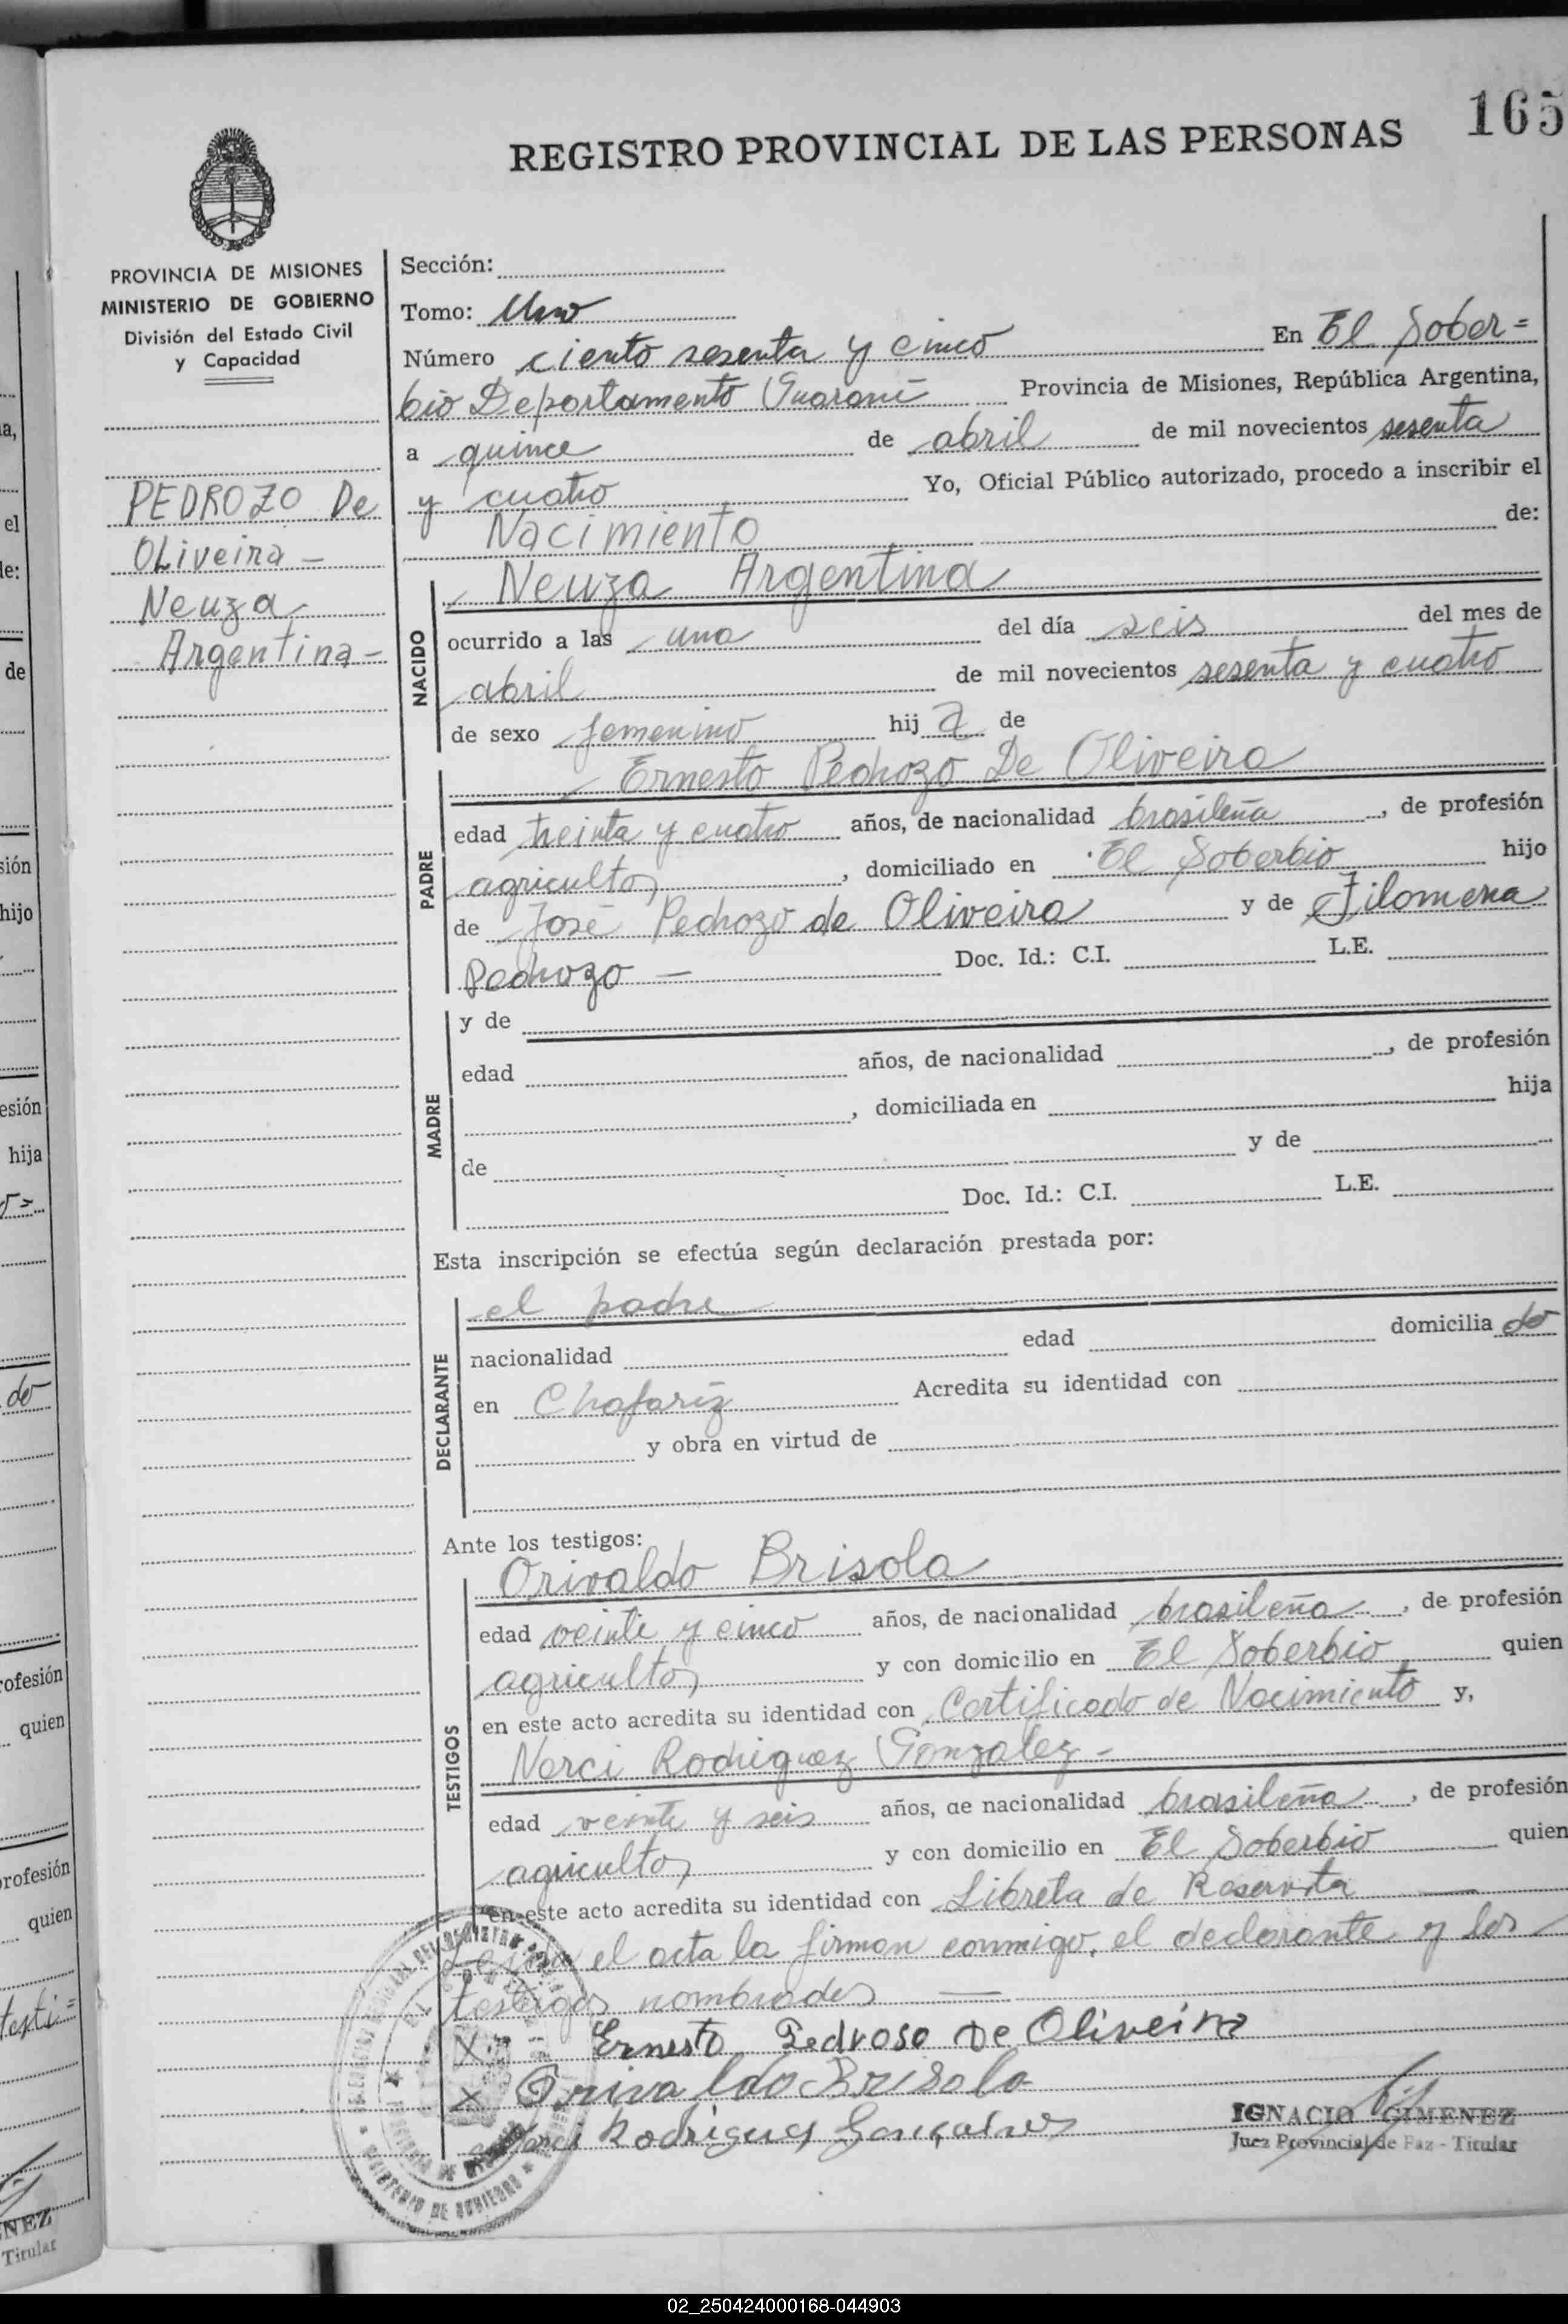 165
REGISTRO PROVINCIAL DE LAS PERSONAS
PROVINCIA DE MISIONES
MINISTERIO DE GOBIERNO
División del Estado Civil
y Capacidad
PEDROZO De
OLiveira -
Neuza
Argentina -
Sección:
Tomo: Uno
Número ciento sesenta y cinco En El Sober=
bio Departamento Guaraní Provincia de Misiones, República Argentina,
a quince de abril de mil novecientos sesenta
y cuatro Yo, Oficial Público autorizado, procedo a inscribir el
Nacimiento de:
Neuza Argentina
NACIDO
ocurrido a las una del día seis del mes de
abril de mil novecientos sesenta y cuatro
de sexo femenino hij a de
Ernesto Pedrozo De Oliveira
PADRE
edad treinta y cuatro años, de nacionalidad brasileña, de profesión
agricultor, domiciliado en El Soberbio hijo
de José Pedrozo de Oliveira y de Filomena
Pedrozo — Doc. Id.: C.I. L.E.
MADRE
y de
edad años, de nacionalidad , de profesión
, domiciliada en hija
de y de
Doc. Id.: C.I. L.E.
Esta inscripción se efectúa según declaración prestada por:
el padre
DECLARANTE
nacionalidad edad domicilia do
en Chafariz Acredita su identidad con
y obra en virtud de
Ante los testigos:
Orivaldo Brisola
TESTIGOS
edad veinte y cinco años, de nacionalidad brasileña, de profesión
agricultor y con domicilio en El Soberbio quien
en este acto acredita su identidad con Certificado de Nacimiento y,
Narci Rodriguez Gonzalez -
edad veinte y seis años, de nacionalidad brasileña, de profesión
agricultor y con domicilio en El Soberbio quien
en este acto acredita su identidad con Libreta de Reservista
Leida el acta la firman conmigo, el declarante y los
testigos nombrados —
X Ernesto Pedroso De Oliveira
X Orivaldo Brisola
Narci Rodrigues Gonçalves
IGNACIO GIMENEZ
Juez Provincial de Paz - Titular
02_250424000168-044903